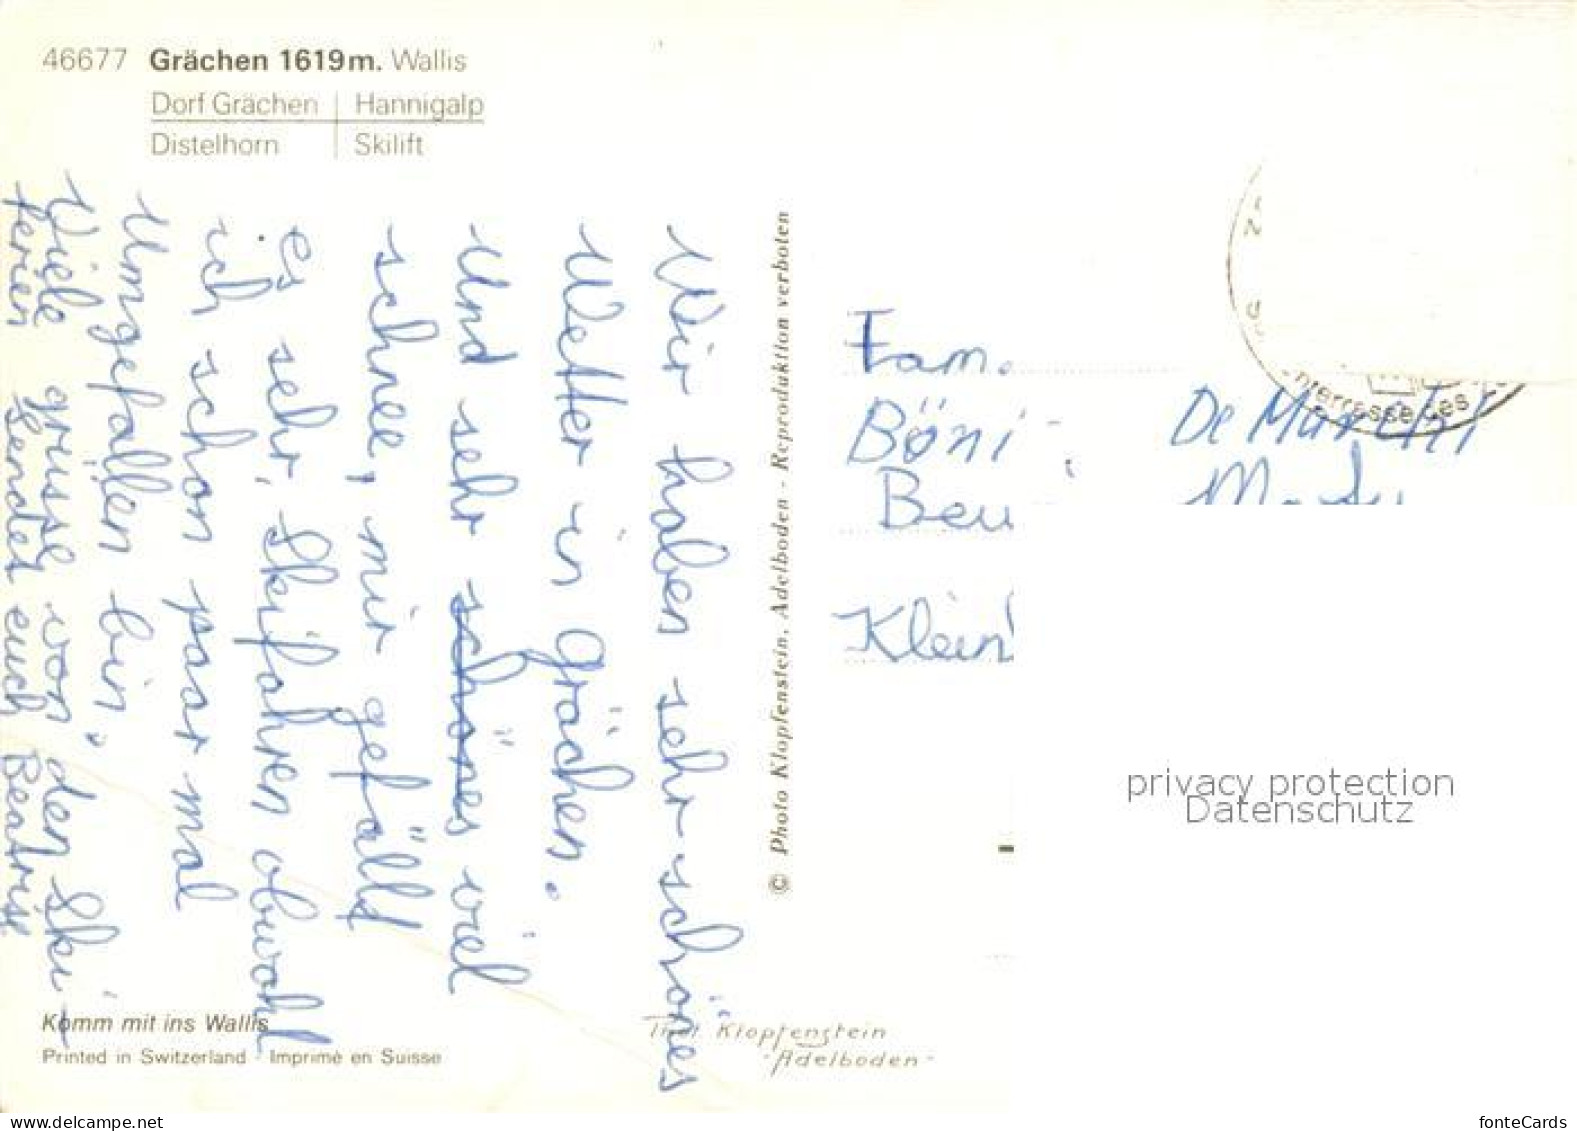 46677 Grächen 1619m. Wallis
Dorf Grächen Hannigalp
Distelhorn Skilift
Wir haben sehr schönes
Wetter in Grächen.
Und sehr schönes viel
schnee, mir gefällt
es sehr, Skifahren obwohl
ich schon paar mal
Umgefallen bin.
Viele grüsse von den Ski-
ferien Sendet euch Beatrise
© Photo Klopfenstein, Adelboden - Reproduktion verboten
Fam.
Böni
Beu
Klein
De
nterrasse des
privacy protection
Datenschutz
Komm mit ins Wallis
Printed in Switzerland - Imprimé en Suisse
Klopfenstein
-Adelboden-
www.delcampe.net
fonteCards